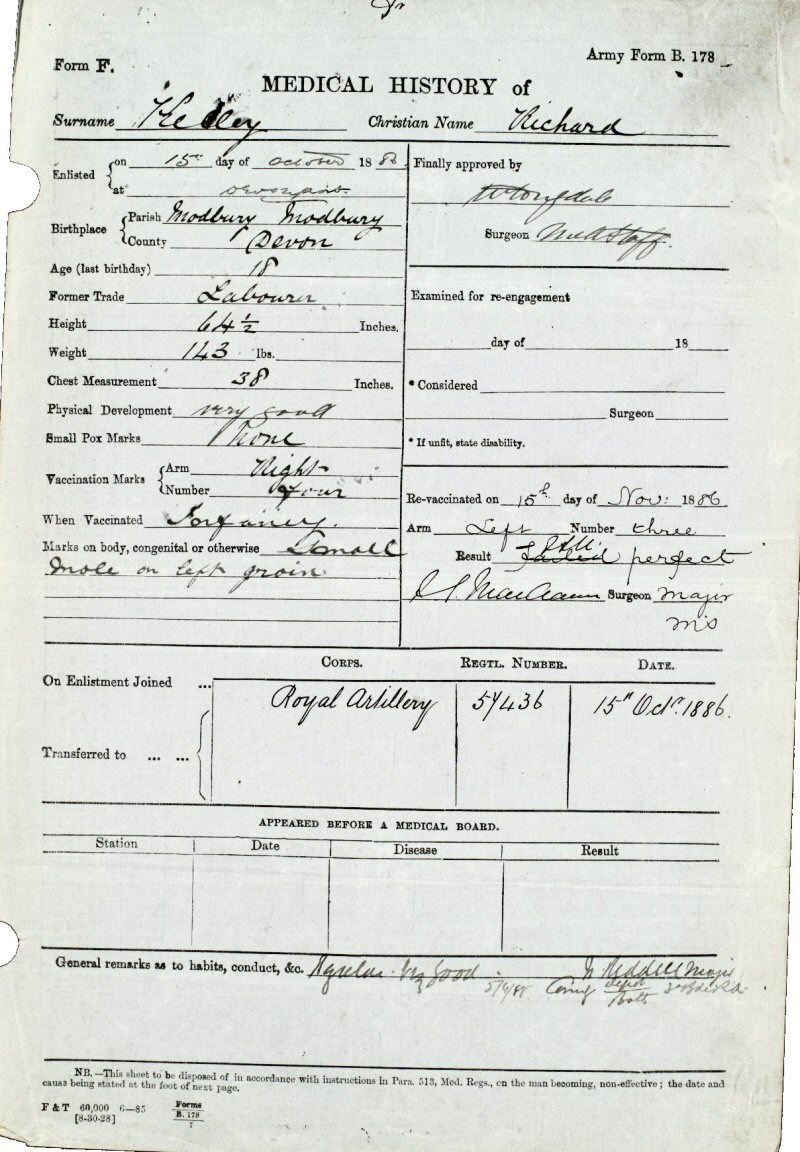 Form F.
Army Form B. 178
MEDICAL HISTORY of
Surname Kelley Christian Name Richard
Enlisted on 15th day of October 1886
at Devonport
Birthplace Parish Modbury Modbury
County Devon
Age (last birthday) 18
Former Trade Labourer
Height 64 ½ Inches.
Weight 143 lbs.
Chest Measurement 38 Inches.
Physical Development very good
Small Pox Marks None
Vaccination Marks Arm Right
Number four
When Vaccinated Infancy.
Marks on body, congenital or otherwise Small
mole on left groin
Finally approved by
Surgeon Med Staff.
Examined for re-engagement
day of 18
* Considered
Surgeon
* If unfit, state disability.
Re-vaccinated on 15th day of Nov: 1886
Arm Left Number three
Result failed perfect
Surgeon Major
MS
CORPS. REGTL. NUMBER. DATE.
On Enlistment Joined ... Royal Artillery 57436 15th Octr. 1886.
Transferred to ... ...
APPEARED BEFORE A MEDICAL BOARD.
Station Date Disease Result
General remarks as to habits, conduct, &c. Regular. Vy Good. Major
NB.—This sheet to be disposed of in accordance with instructions in Para. 513, Med. Regs., on the man becoming, non-effective; the date and
cause being stated at the foot of next page.
F & T 60,000 6—85 Forms
[8-30-28] B. 178
7